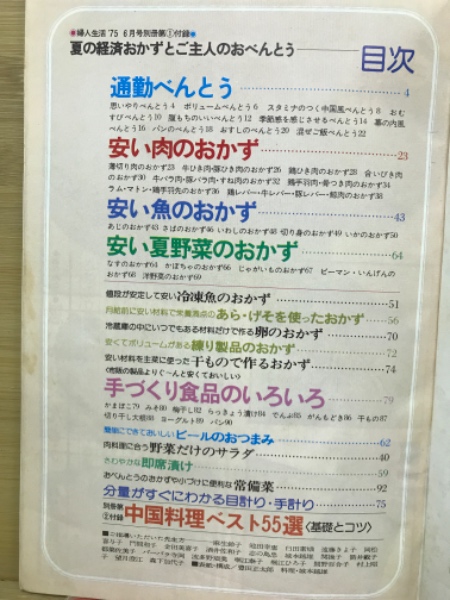 ●婦人生活'75 6月号別冊第①付録●
夏の経済おかずとご主人のおべんとう 目次
通勤べんとう 4
思いやりべんとう4 ボリュームべんとう6 スタミナのつく中国風べんとう8 おむ
すびべんとう10 腹もちのいいべんとう12 季節感を感じさせるべんとう14 幕の内風
べんとう16 パンのべんとう18 おすしのべんとう20 混ぜご飯べんとう22
安い肉のおかず 23
薄切り肉のおかず23 牛ひき肉・豚ひき肉のおかず26 鶏ひき肉のおかず28 合いびき肉
のおかず30 牛バラ肉・豚バラ肉・すね肉のおかず32 鶏手羽肉・骨つき肉のおかず34
ラム・マトン・鶏手羽先のおかず36 鶏レバー・牛レバー・豚レバー・鯨肉のおかず38
安い魚のおかず 43
あじのおかず43 さばのおかず46 いわしのおかず48 切り身のおかず49 いかのおかず50
安い夏野菜のおかず 64
なすのおかず64 かぼちゃのおかず66 じゃがいものおかず67 ピーマン・いんげんの
おかず68 洋野菜のおかず69
値段が安定して安い冷凍魚のおかず 51
月給前に安い材料で栄養満点のあら・げそを使ったおかず 56
冷蔵庫の中にいつでもある材料だけで作る卵のおかず 70
安くてボリュームがある練り製品のおかず 72
安い材料を主菜に使った干もので作るおかず 74
〈市販の製品よりぐ〜んと安くておいしい〉
手づくり食品のいろいろ 79
かまぼこ79 みそ80 梅干し82 らっきょう漬け84 でんぶ85 がんもどき86 干もの87
切り干し大根88 ヨーグルト89 パン90
簡単にできておいしいビールのおつまみ 62
肉料理に合う野菜だけのサラダ 40
さわやかな即席漬け 59
おべんとうのおかずや小づけに便利な常備菜 92
分量がすぐにわかる目計り・手計り 75
別冊第②付録 中国料理ベスト55選〈基礎とコツ〉